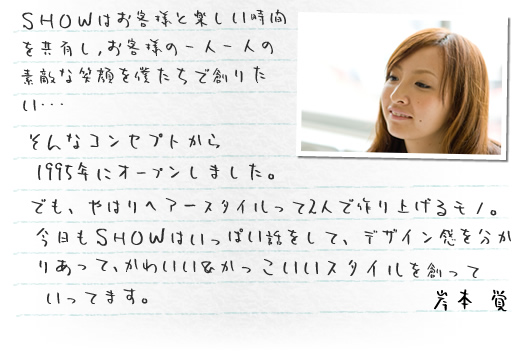 SHOWはお客様と楽しい時間
を共有し、お客様の一人一人の
素敵な笑顔を僕たちで創りた
い…
そんなコンセプトから
1995年にオープンしました。
でも、やはりヘアースタイルって2人で作り上げるモノ。
今日もSHOWはいっぱい話をして、デザイン感を分か
りあって、かわいい&かっこいいスタイルを創って
いってます。
岸本 覚